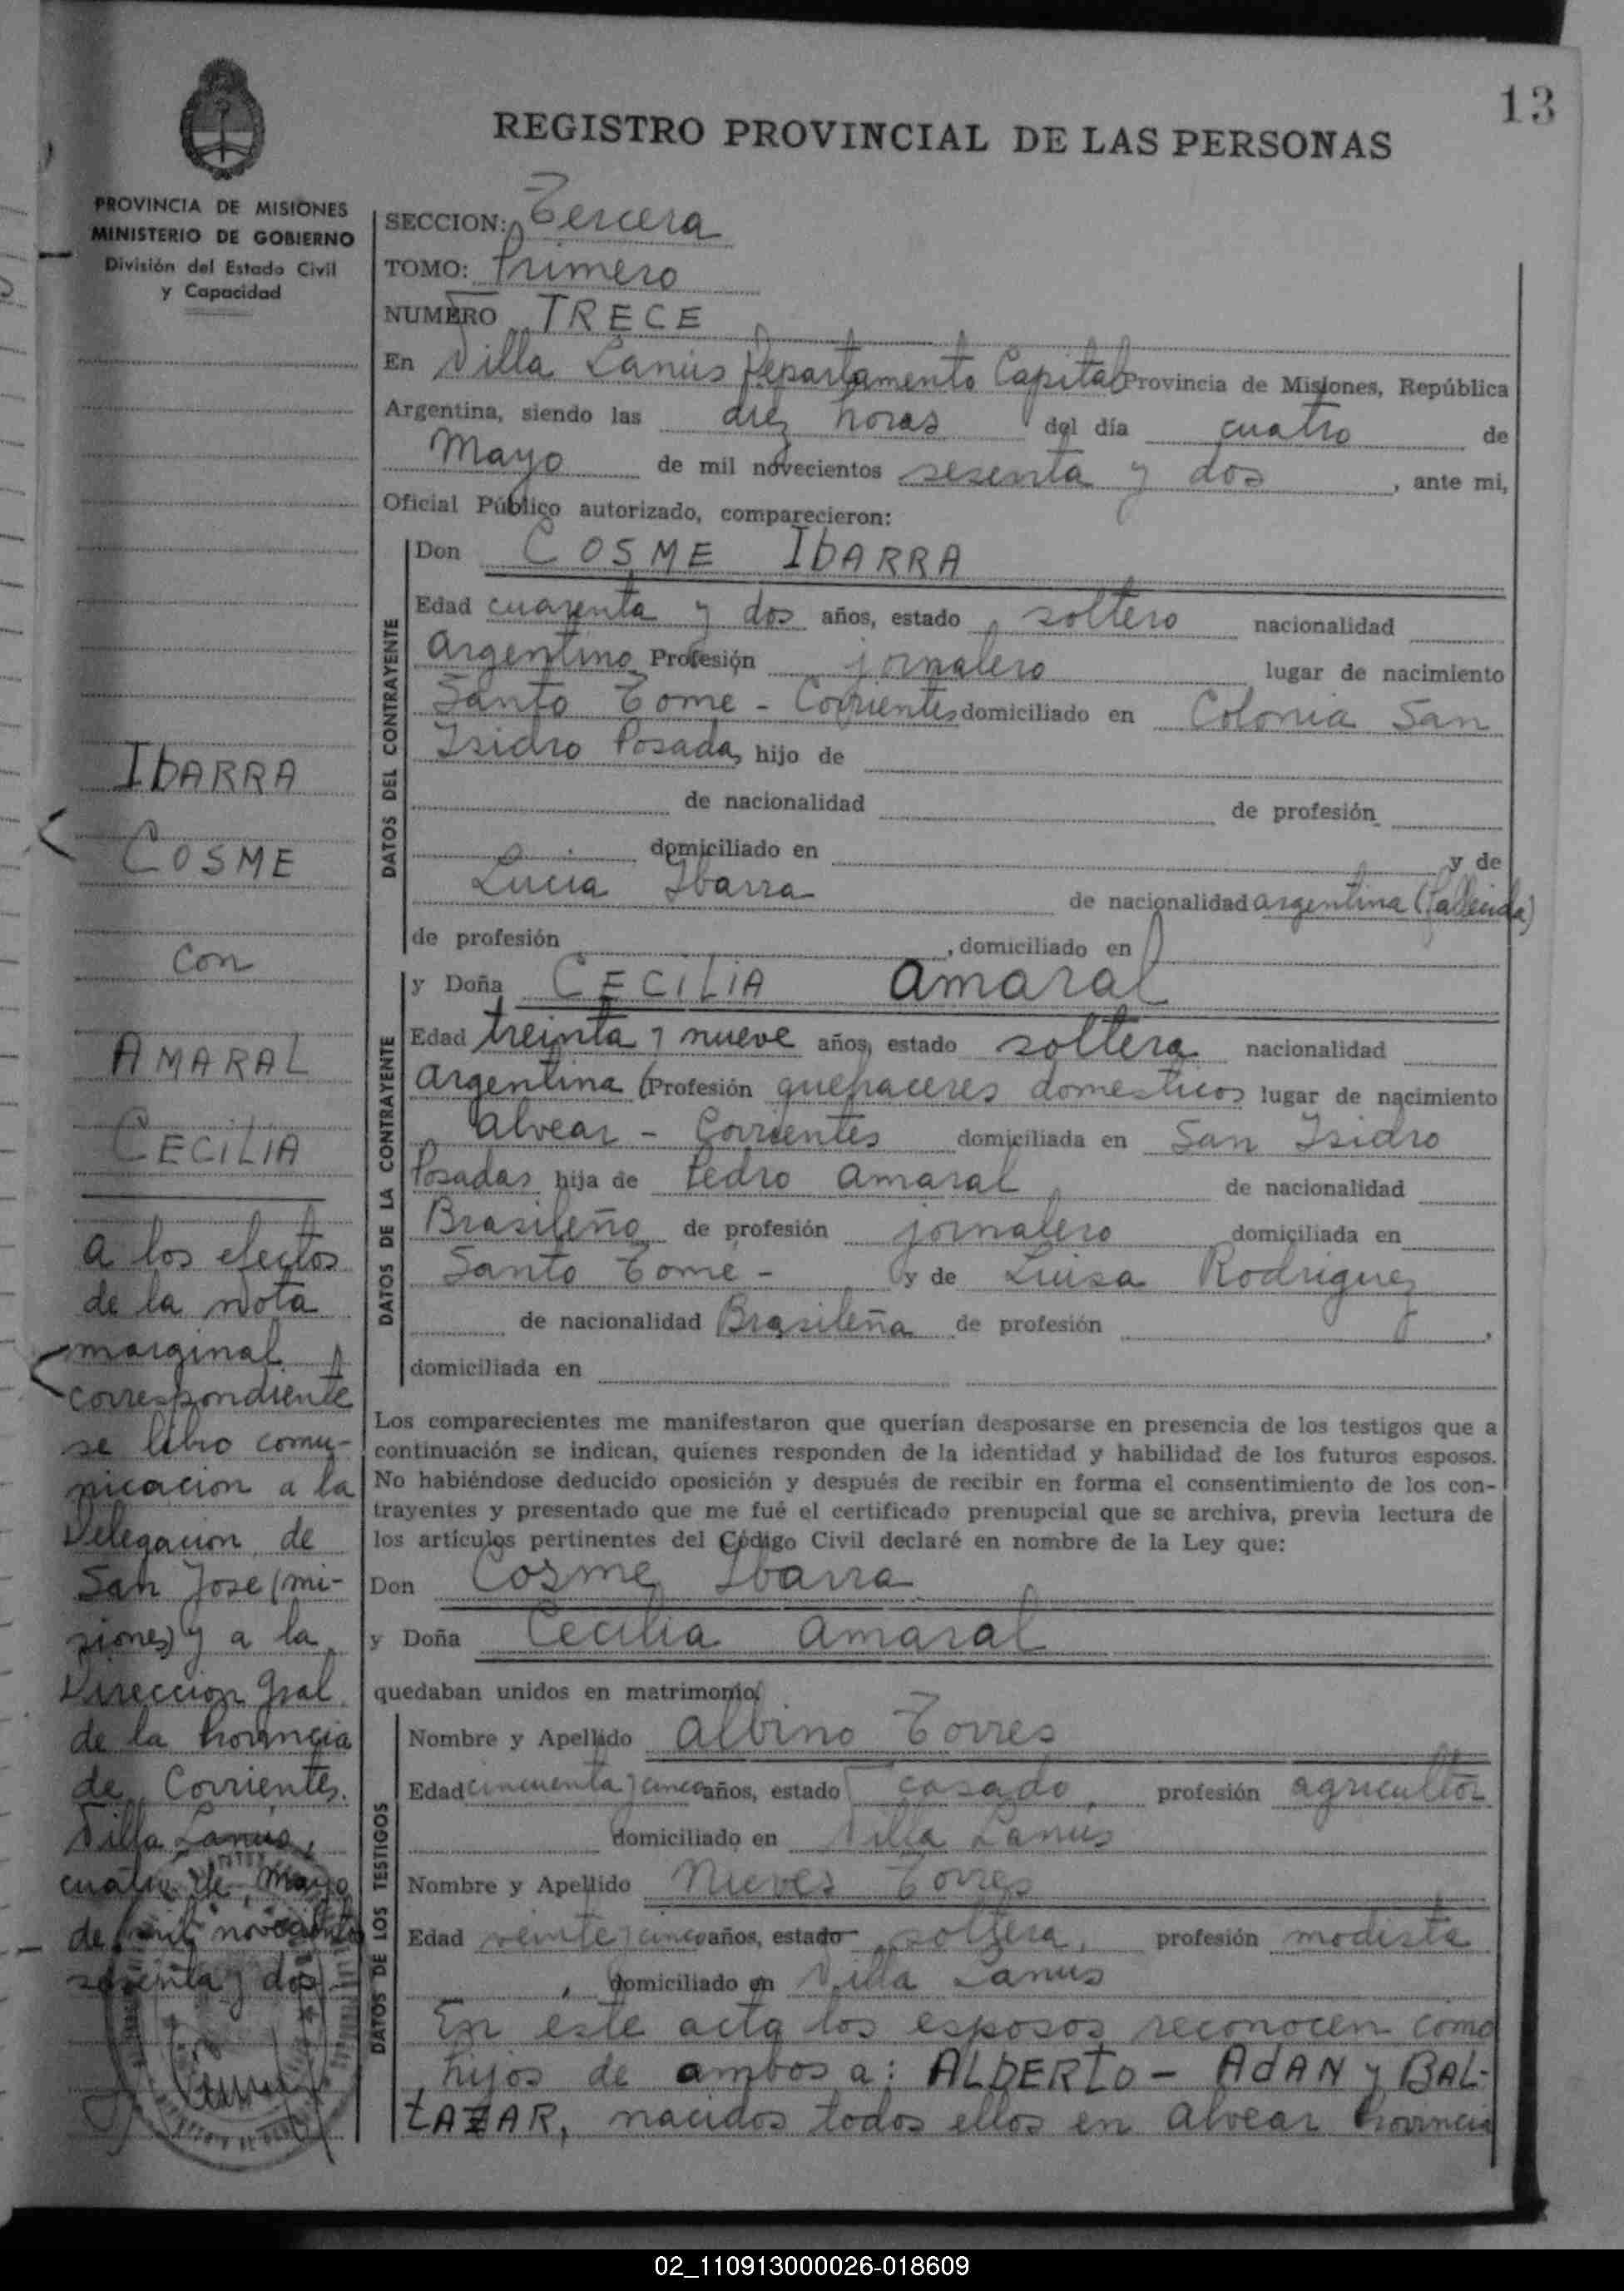 13
REGISTRO PROVINCIAL DE LAS PERSONAS
PROVINCIA DE MISIONES
MINISTERIO DE GOBIERNO
División del Estado Civil
y Capacidad
IbARRA
COSME
con
AMARAL
CECILIA
a los efectos
de la nota
marginal
correspondiente
se libro comu-
nicacion a la
Delegacion de
San Jose (mi-
siones) y a la
Direccion Gral
de la Provincia
de Corrientes.
Villa Lanus,
cuatro de Mayo
de mil novecientos
sesenta y dos
SECCION: Tercera
TOMO: Primero
NUMERO TRECE
En Villa Lanús Departamento Capital Provincia de Misiones, República
Argentina, siendo las diez horas del día cuatro de
Mayo de mil novecientos sesenta y dos, ante mi,
Oficial Público autorizado, comparecieron:
DATOS DEL CONTRAYENTE
Don COSME IbARRA
Edad cuarenta y dos años, estado soltero nacionalidad
argentino Profesión jornalero lugar de nacimiento
Santo Tome - Corrientes domiciliado en Colonia San
Isidro Posadas hijo de
de nacionalidad de profesión
domiciliado en y de
Lucia Ibarra de nacionalidad argentina (fallecida)
de profesión , domiciliado en
DATOS DE LA CONTRAYENTE
y Doña CECILIA amaral
Edad treinta y nueve años, estado soltera nacionalidad
argentina Profesión quehaceres domesticos lugar de nacimiento
alvear - Corrientes domiciliada en San Isidro
Posadas hija de Pedro amaral de nacionalidad
Brasileño de profesión jornalero domiciliada en
Santo Tome - y de Luisa Rodriguez
de nacionalidad Brasileña de profesión ,
domiciliada en
Los comparecientes me manifestaron que querían desposarse en presencia de los testigos que a
continuación se indican, quienes responden de la identidad y habilidad de los futuros esposos.
No habiéndose deducido oposición y después de recibir en forma el consentimiento de los con-
trayentes y presentado que me fué el certificado prenupcial que se archiva, previa lectura de
los artículos pertinentes del Código Civil declaré en nombre de la Ley que:
Don Cosme Ibarra
y Doña Cecilia amaral
quedaban unidos en matrimonio.
DATOS DE LOS TESTIGOS
Nombre y Apellido albino Torres
Edad cincuenta y cinco años, estado casado, profesión agricultor
domiciliado en Villa Lanus
Nombre y Apellido Nieves Torres
Edad veinte y cinco años, estado soltera, profesión modista
, domiciliado en Villa Lanus
En este acta los esposos reconocen como
hijos de ambos a: ALbERto - AdAN y BAL-
tAZAR, nacidos todos ellos en alvear Provincia
02_110913000026-018609